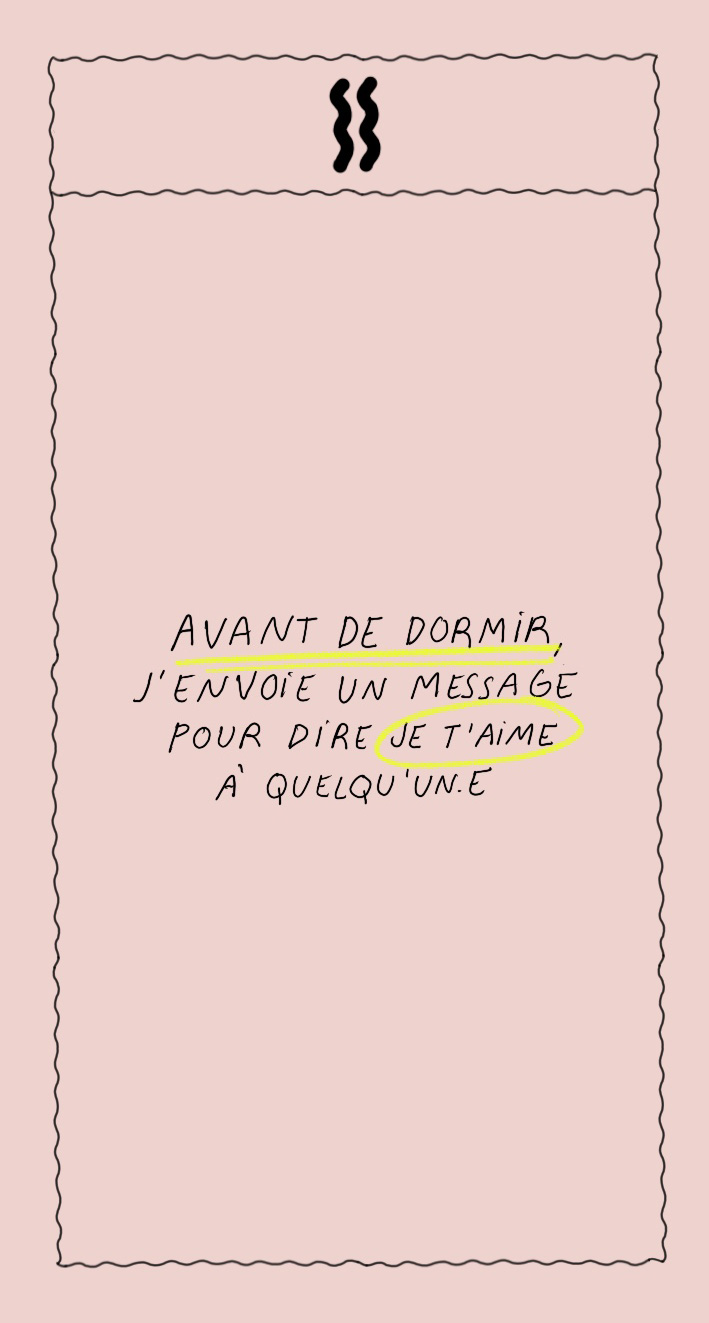 AVANT DE DORMIR,
J'ENVOIE UN MESSAGE
POUR DIRE JE T'AIME
À QUELQU'UN.E